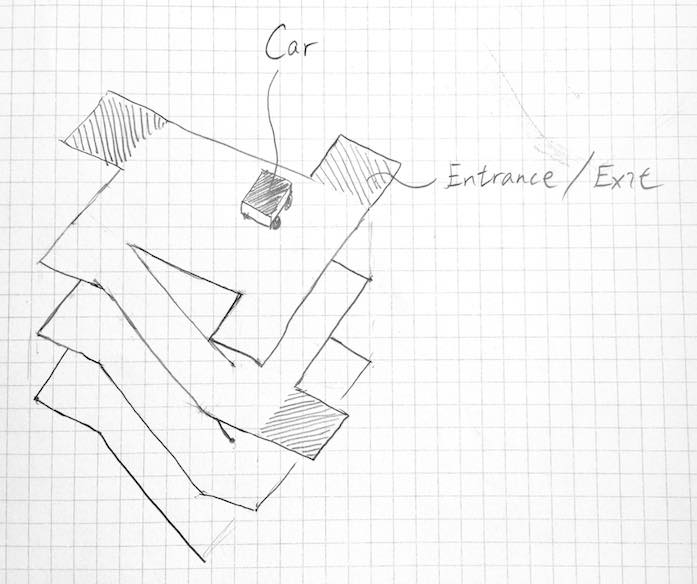 Car
Entrance/Exit